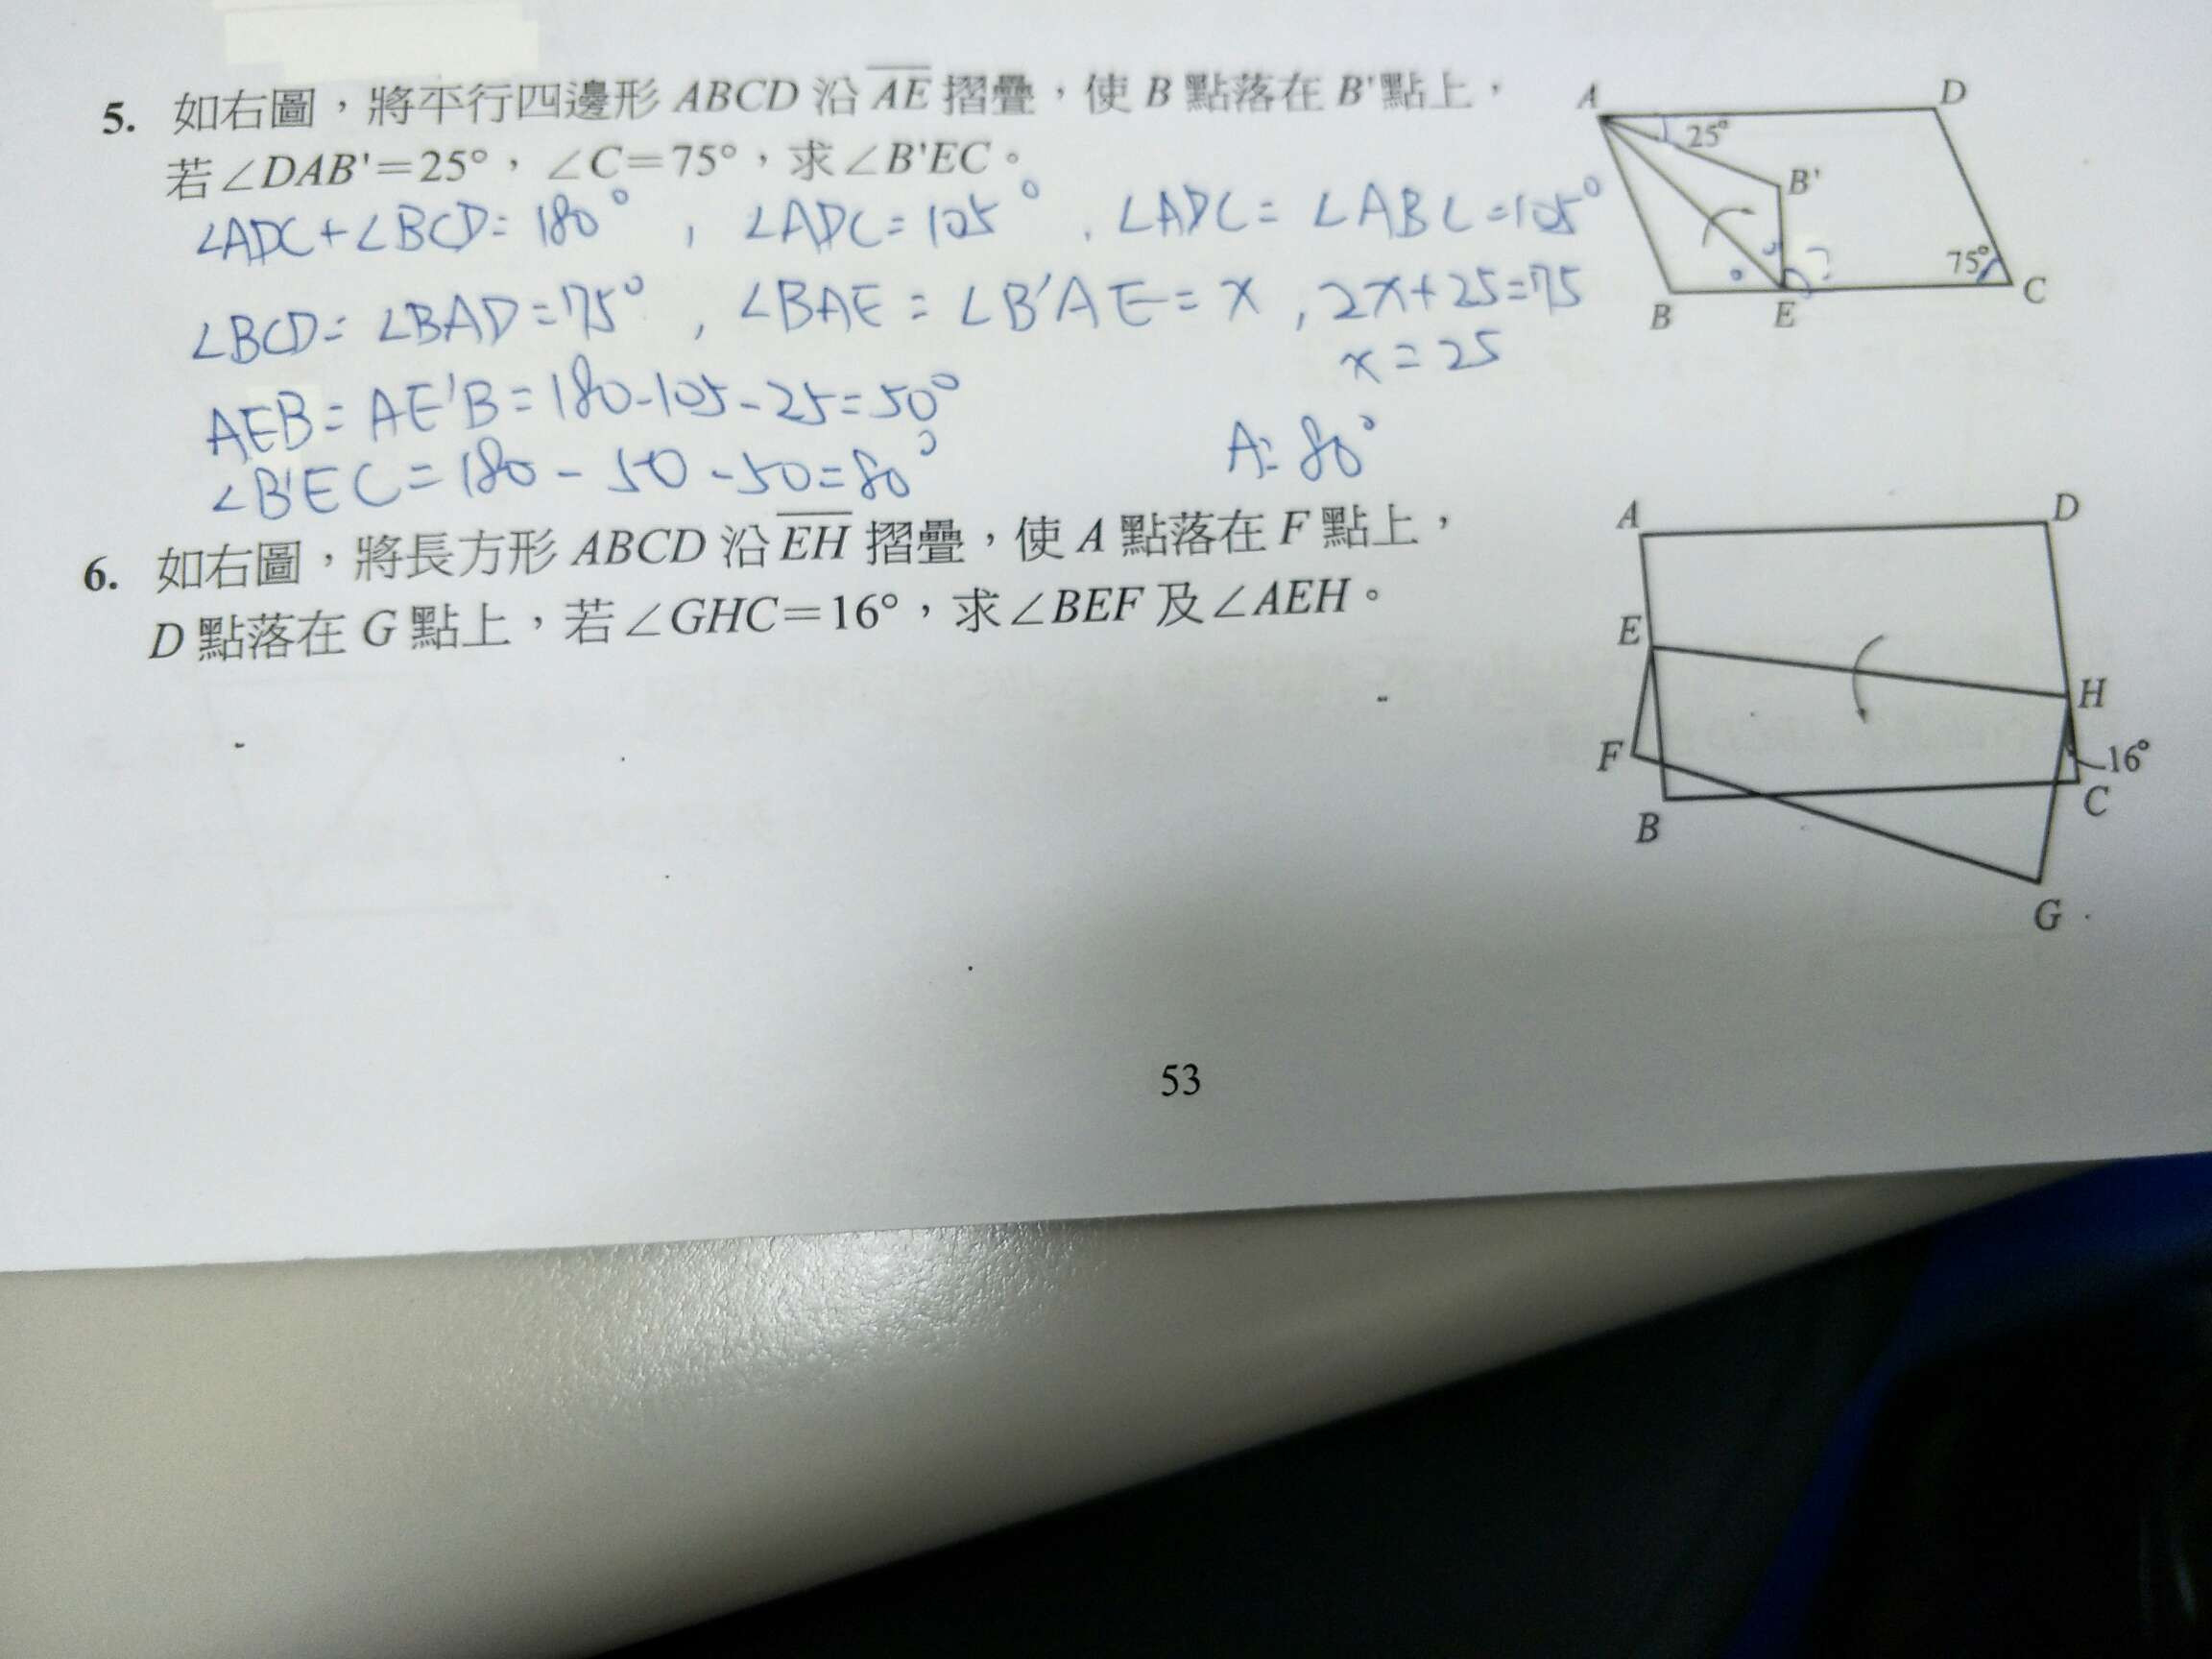 5. 如右圖，將平行四邊形 ABCD 沿 AE 摺疊，使 B 點落在 B'點上，
若∠DAB'=25°，∠C=75°，求∠B'EC。
∠ADC+∠BCD=180°, ∠ADC=105°, ∠ADC=∠ABC=105°
∠BCD=∠BAD=75°, ∠BAE=∠B'AE=x, 2x+25=75
x=25
AEB=AE'B=180-105-25=50°
∠B'EC=180-50-50=80°
A: 80°
A
D
25°
B'
75°
B
E
C
6. 如右圖，將長方形 ABCD 沿 EH 摺疊，使 A 點落在 F 點上，
D 點落在 G 點上，若∠GHC=16°，求∠BEF 及∠AEH。
A
D
E
H
F
16°
C
B
G
53